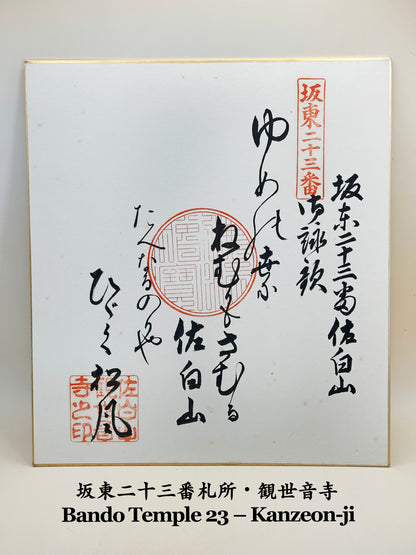 坂東二十三番佐白山
坂東二十三番
御詠歌
ゆめの世に
ねむりもさむる
佐白山
たへなるのりや
ひゞく松風
佐白山
観世音
寺之印
坂東二十三番札所・観世音寺
Bando Temple 23 – Kanzeon-ji